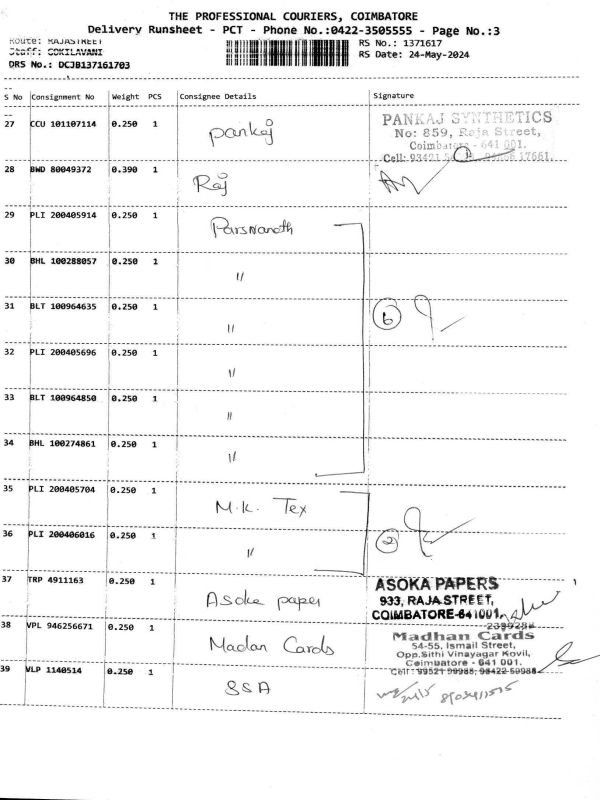 THE PROFESSIONAL COURIERS, COIMBATORE
Delivery Runsheet - PCT - Phone No.:0422-3505555 - Page No.:3
Route: RAJASTREET
RS No.: 1371617
Staff: GOKILAVANI
RS Date: 24-May-2024
DRS No.: DCJB137161703
S No Consignment No Weight PCS Consignee Details Signature
27 CCU 101107114 0.250 1 Pankaj
PANKAJ SYNTHETICS
No: 859, Raja Street,
Coimbatore - 641 001.
Cell: 93421 17661.
28 BWD 80049372 0.390 1 Raj
29 PLI 200405914 0.250 1 Parswanath
30 BHL 100288057 0.250 1 "
31 BLT 100964635 0.250 1 " 6
32 PLI 200405696 0.250 1 "
33 BLT 100964850 0.250 1 "
34 BHL 100274861 0.250 1 "
35 PLI 200405704 0.250 1 M.K. Tex
36 PLI 200406016 0.250 1 " 2
37 TRP 4911163 0.250 1 Asoka paper
ASOKA PAPERS
933, RAJA STREET,
COIMBATORE-641001.
38 VPL 946256671 0.250 1 Madan Cards
Madhan Cards
54-55, Ismail Street,
Opp.Sithi Vinayagar Kovil,
Coimbatore - 641 001.
Cell: 99521 50988, 98422 50988
39 VLP 1140514 0.250 1 SSA